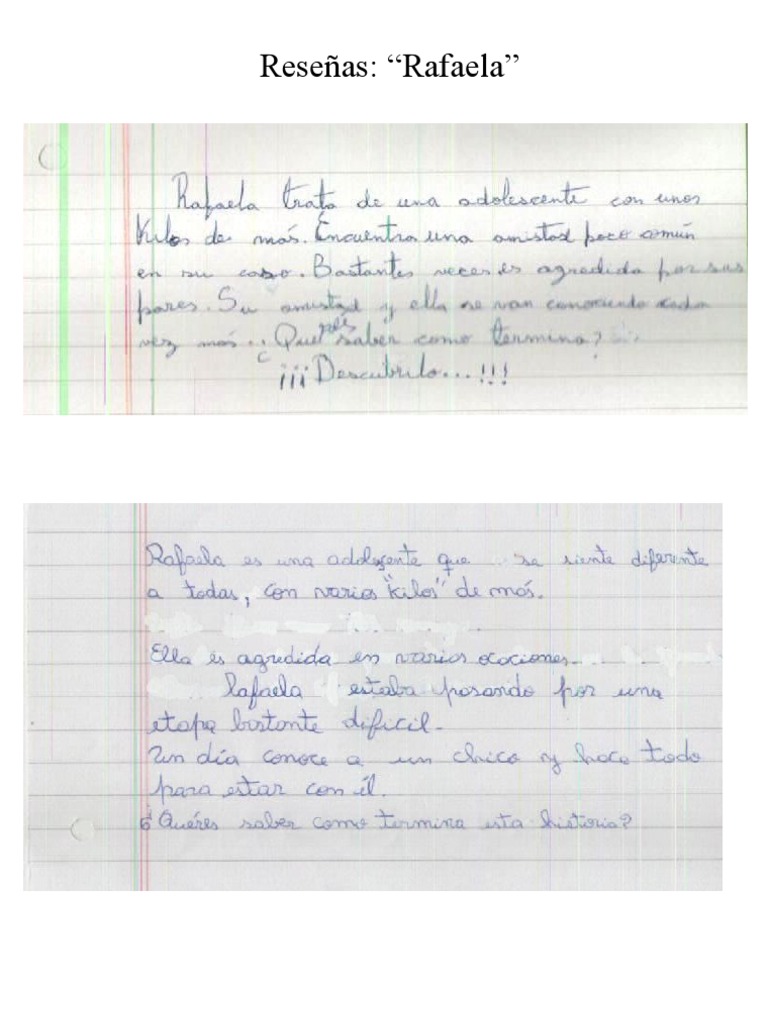 Reseñas: “Rafaela”
Rafaela trata de una adolescente con unos
Kilos de más. Encuentra una amistad poco común
en su caso. Bastantes veces es agredida por sus
pares. Su amistad y ella se van conociendo cada
vez más... ¿Querés saber como termina?
¡¡¡Descubrilo...!!!
Rafaela es una adolescente que se siente diferente
a todas, con varios "kilos" de más.
Ella es agredida en varios ocociones...
Rafaela estaba pasando por una
etapa bastante dificil.
Un día conoce a un chico y hace todo
para estar con él.
¿Querés saber como termina esta historia?